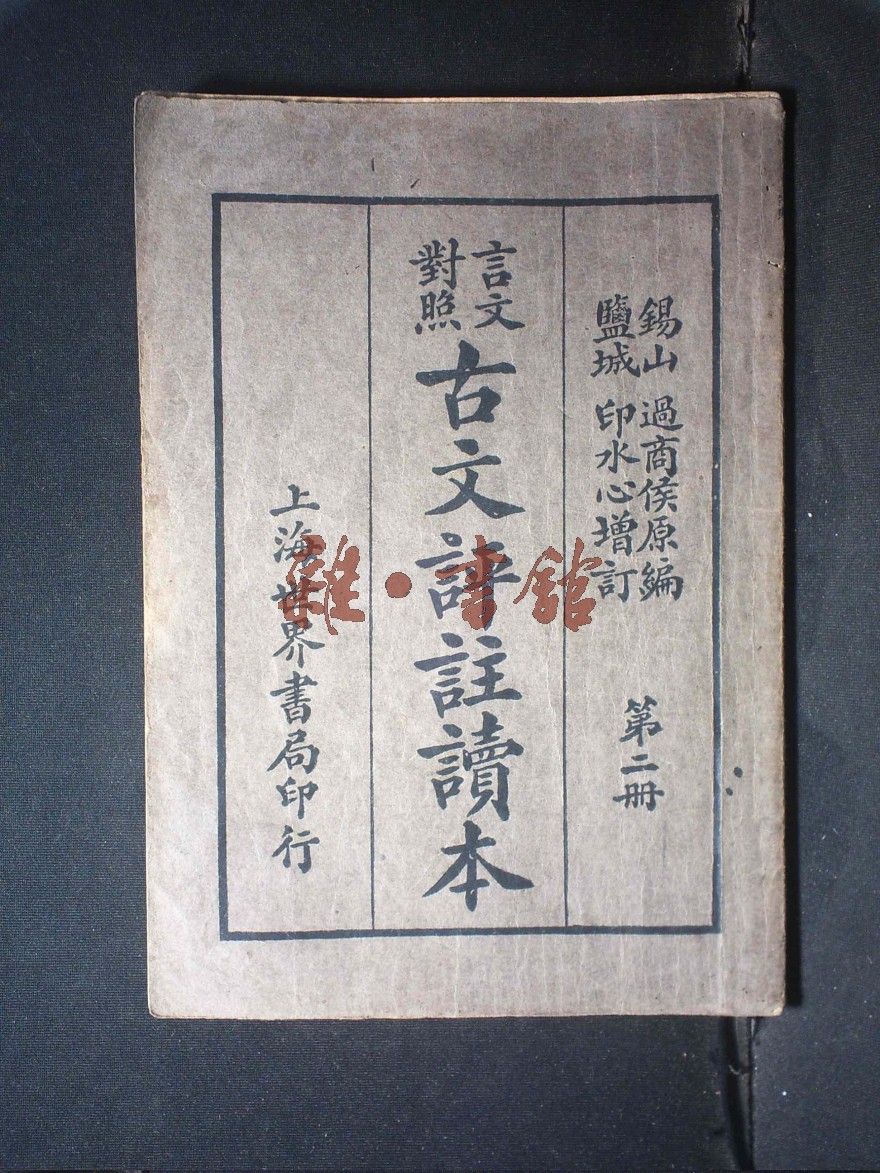 錫山 過商侯原編
鹽城 印水心增訂
第二冊
言文
對照
古文評註讀本
上海世界書局印行
雜·書館